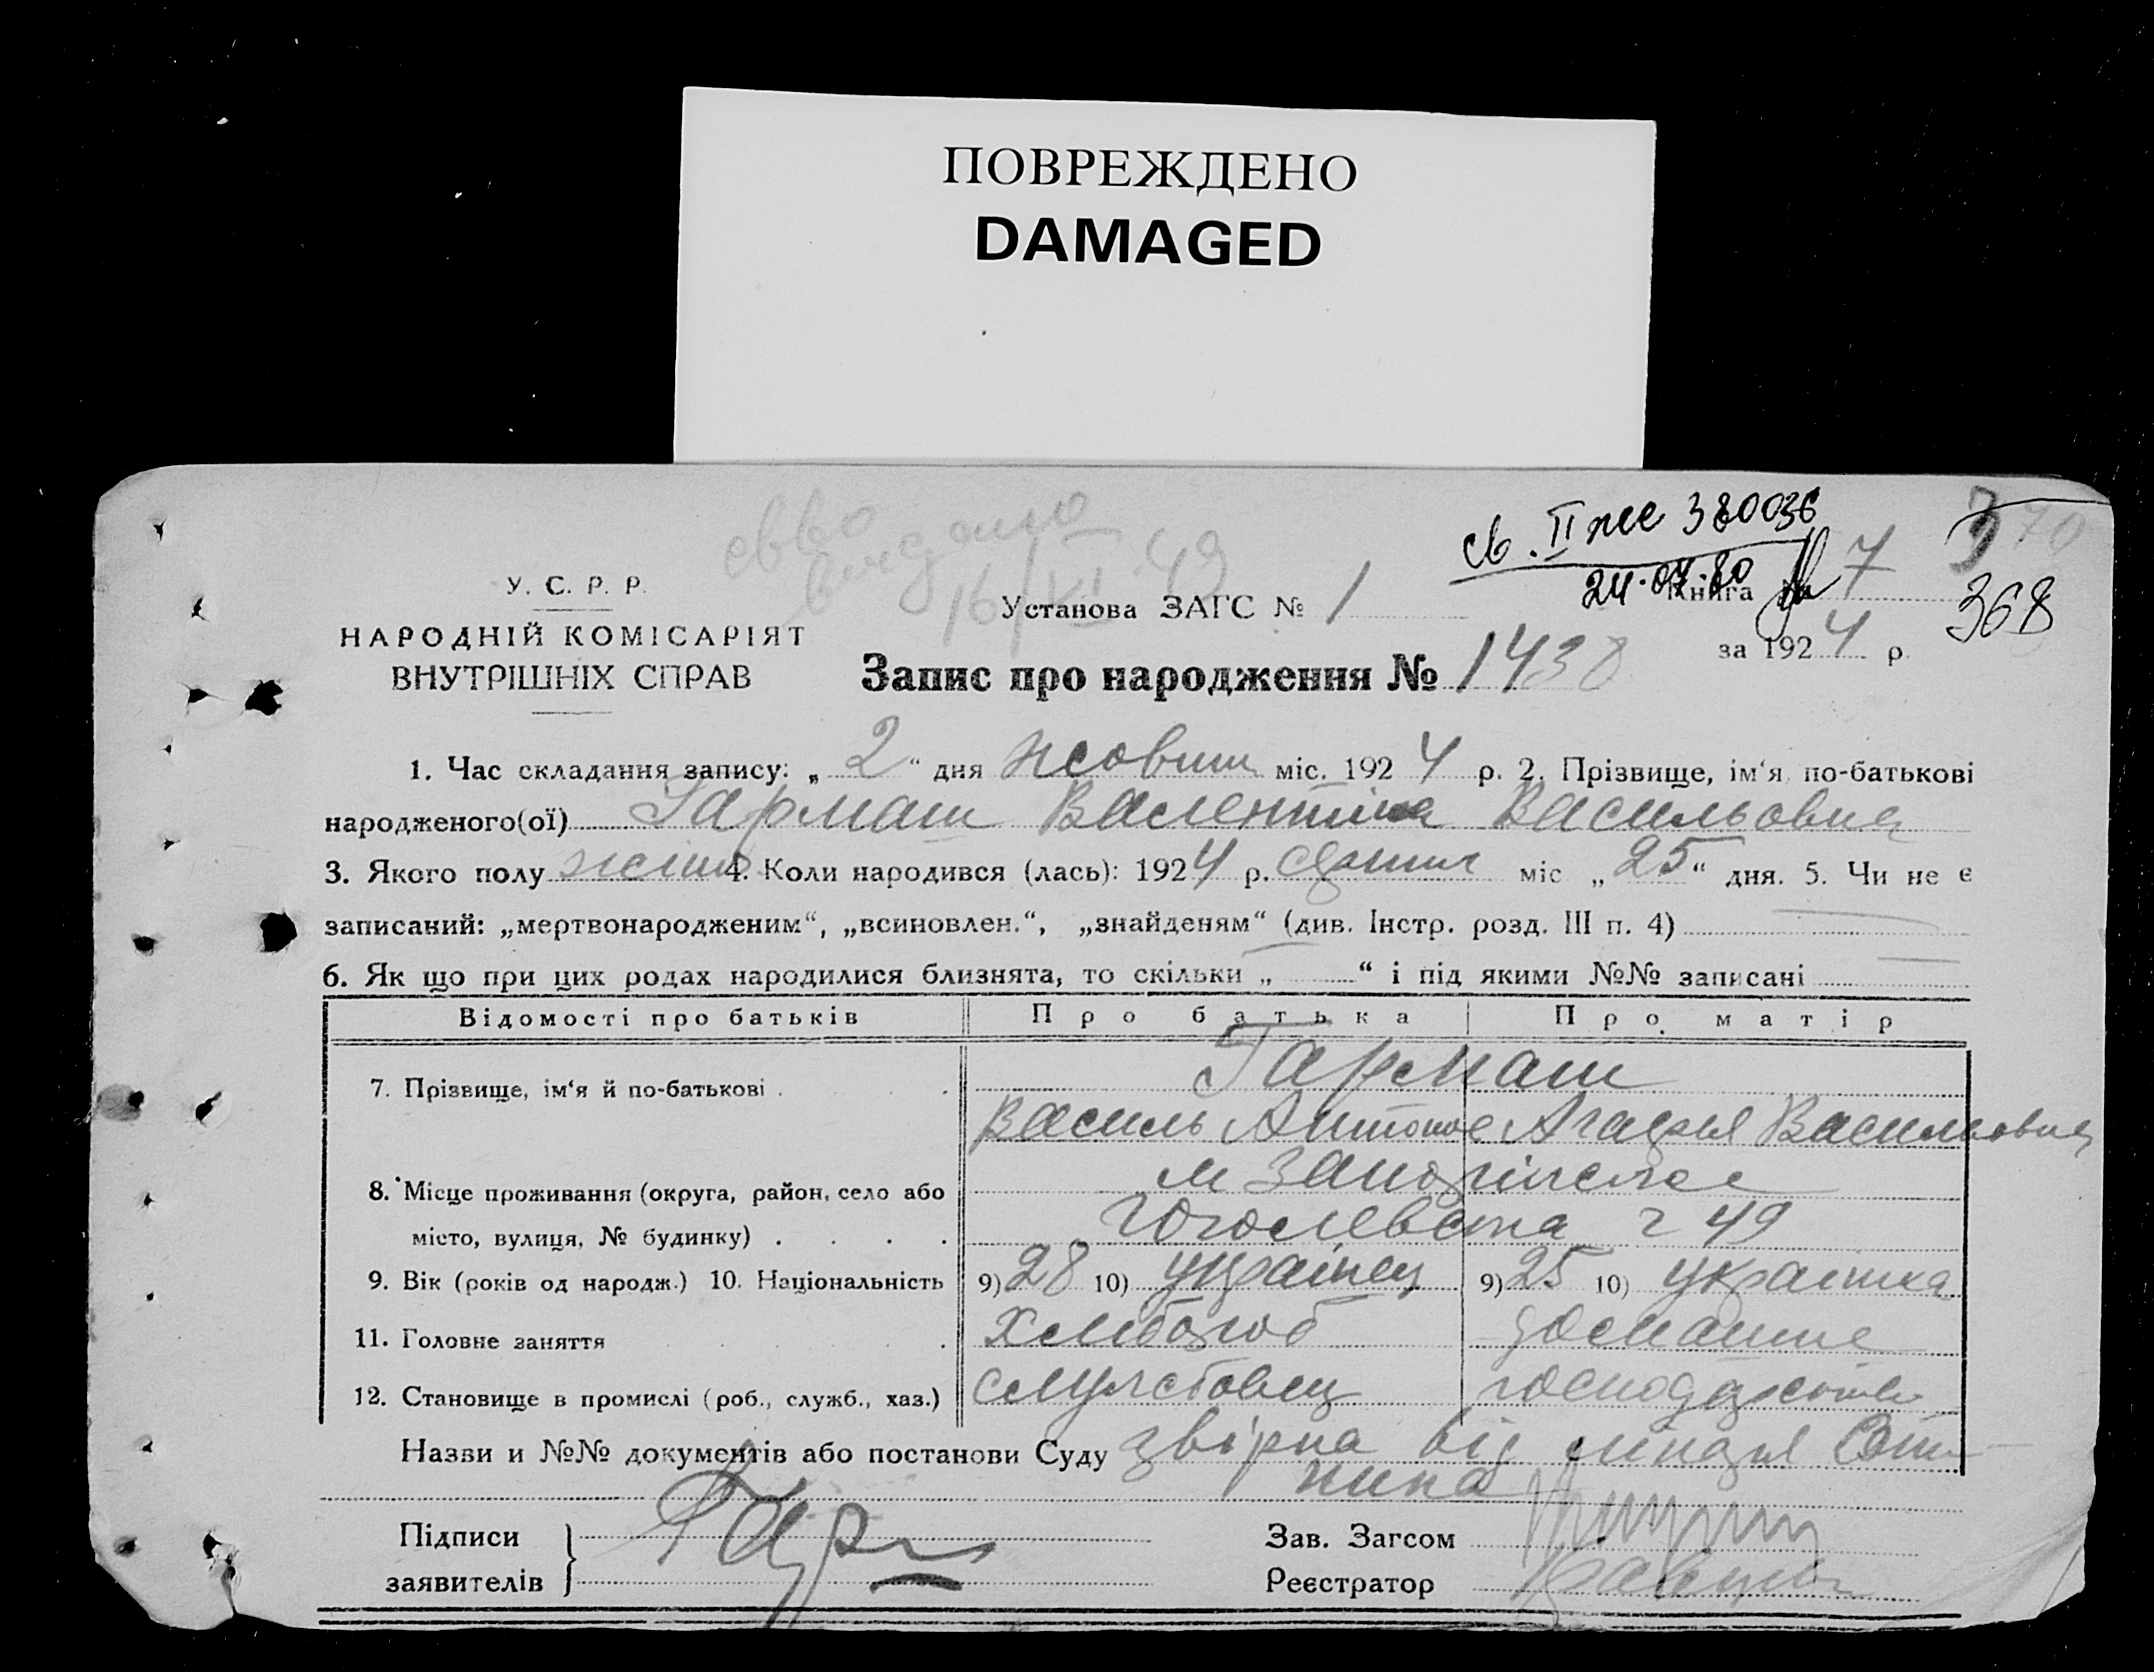 ПОВРЕЖДЕНО
DAMAGED
св. II же 380036
24.07.80
видано
16/VI 49
368
У. С. Р. Р.
НАРОДНІЙ КОМІСАРІЯТ
ВНУТРІШНІХ СПРАВ
Установа ЗАГС № 1
Книга 7
за 1924 р.
Запис про народження № 1438
1. Час складання запису: „ 2 “ дня жовтня міс. 1924 р. 2. Прізвище, ім‘я по-батькові
народженого(ої) Гармаш Валентіна Васильовна
3. Якого полу жіноч 4. Коли народився (лась): 1924 р. міс „ 25 “ дня. 5. Чи не є
записаний: „мертвонародженим“, „всиновлен.“, „знайденям“ (див. Інстр. розд. III п. 4)
6. Як що при цих родах народилися близнята, то скільки „ “ і під якими №№ записані
Відомості про батьків Про батька Про матір
7. Прізвище, ім‘я й по-батькові . Гармаш
Василь Антонов Агафия Васильовна
8. Місце проживання (округа, район, село або м Запоріжжє
місто, вулиця, № будинку) . Гоголевська 49
9. Вік (років од народж.) 10. Національність 9) 28 10) українец 9) 25 10) украінка
11. Головне заняття Хлибороб домашне
12. Становище в промислі (роб., служб., хаз.) службовец господарство
Назви и №№ документів або постанови Суду від
Підписи
заявителів
Гарм
Зав. Загсом
Реєстратор